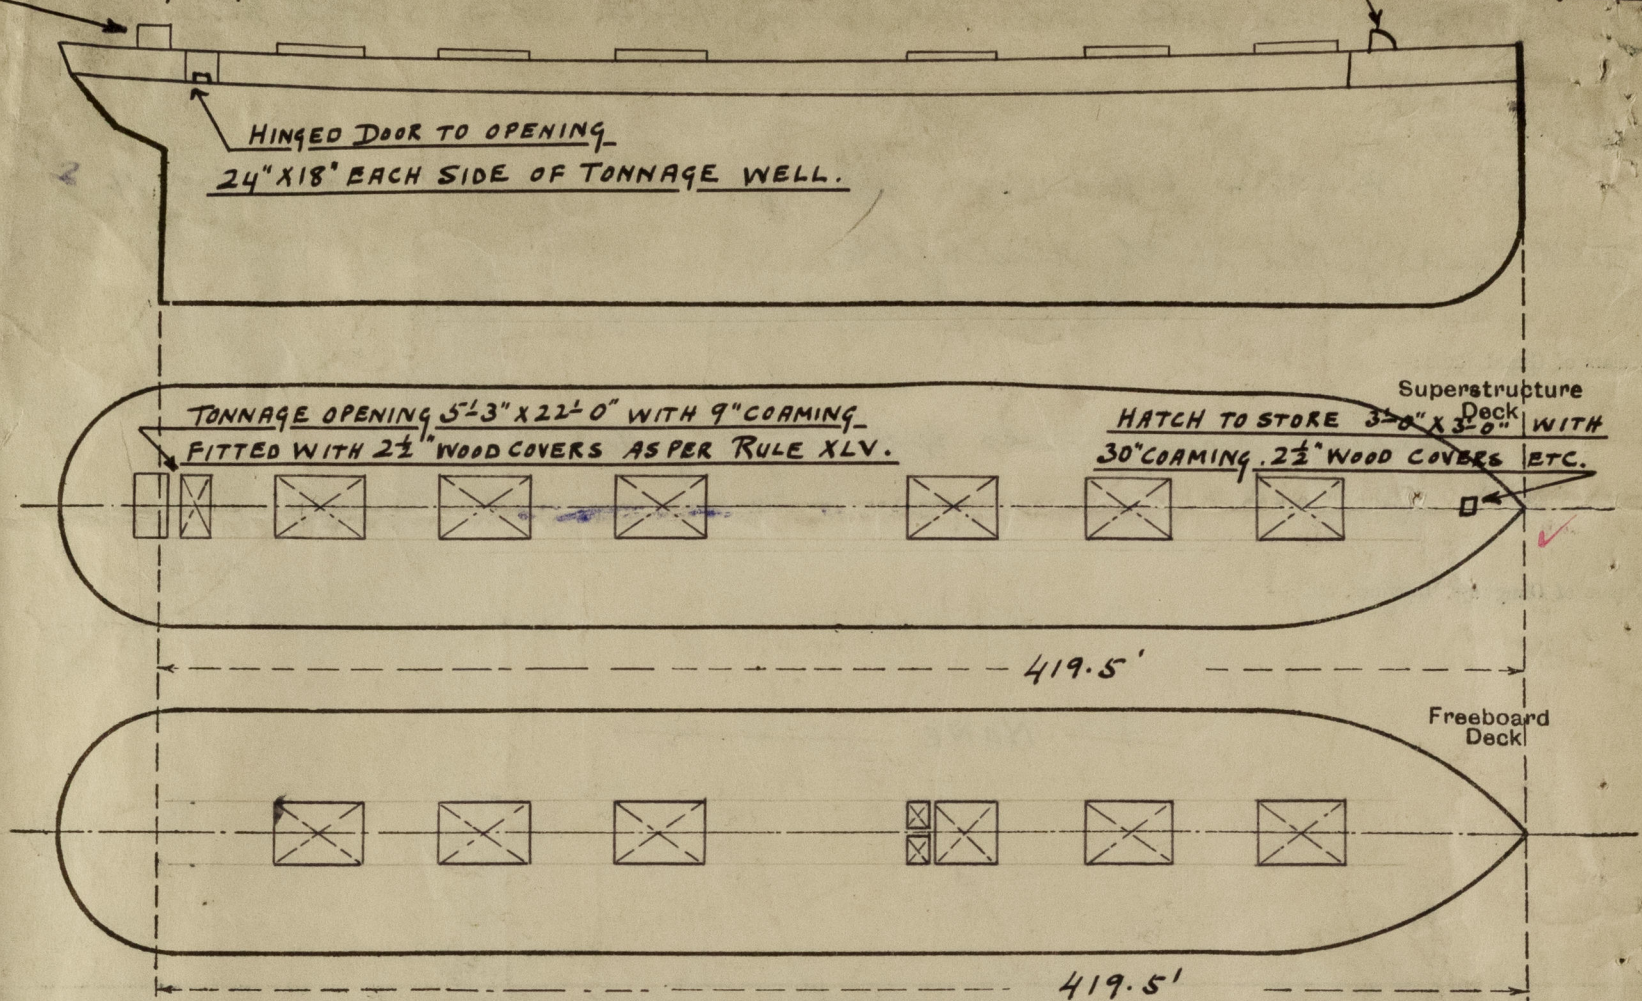 HINGED DOOR TO OPENING
24" X 18" EACH SIDE OF TONNAGE WELL.
Superstructure
Deck
TONNAGE OPENING 5'-3" X 22'-0" WITH 9" COAMING
FITTED WITH 2½" WOOD COVERS AS PER RULE XLV.
HATCH TO STORE 3'-0" X 3'-0" WITH
30" COAMING. 2½" WOOD COVERS ETC.
419.5'
Freeboard
Deck
419.5'